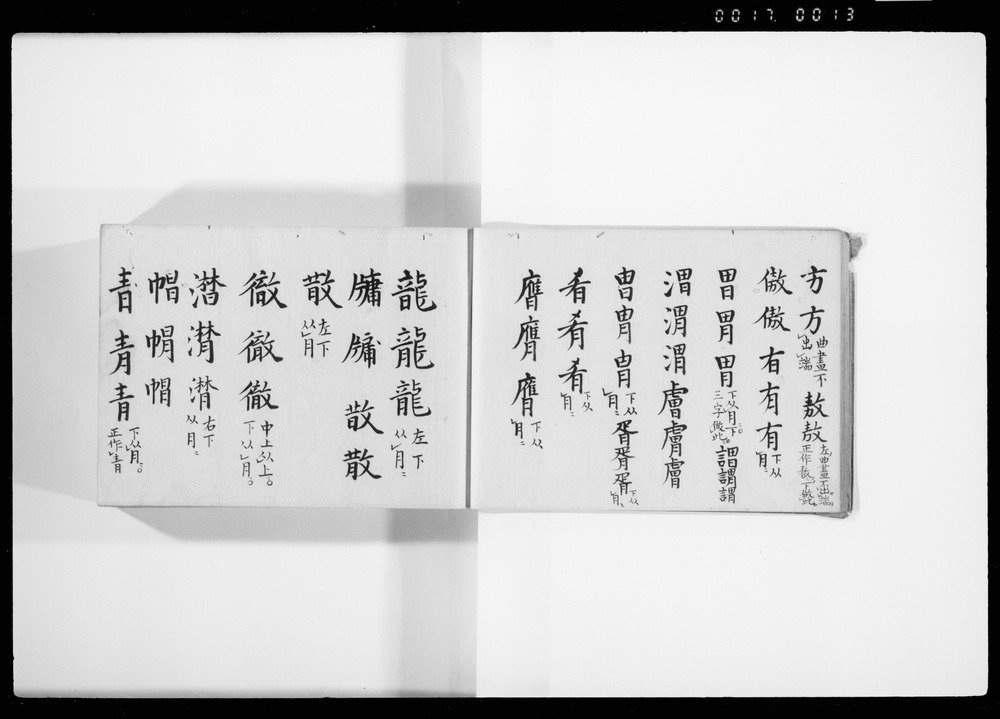 0017 0013
方方 曲畫不出端 敖敖 左曲畫不出端 正作敖下
傲傲有有有 下从月
胃胃胃 下从月下三字倣此 謂謂謂
渭渭渭膚膚膚
胄胄胄 下从月 胥胥胥 下从月
肴肴肴 下从月
膺膺膺 下从月
龍龍龍 左下从月
牗牗散散
散 左下从月
徹徹徹 中上从上 下从月
潸潸潸 右下从月
帽帽帽
青青青 下从月 正作青